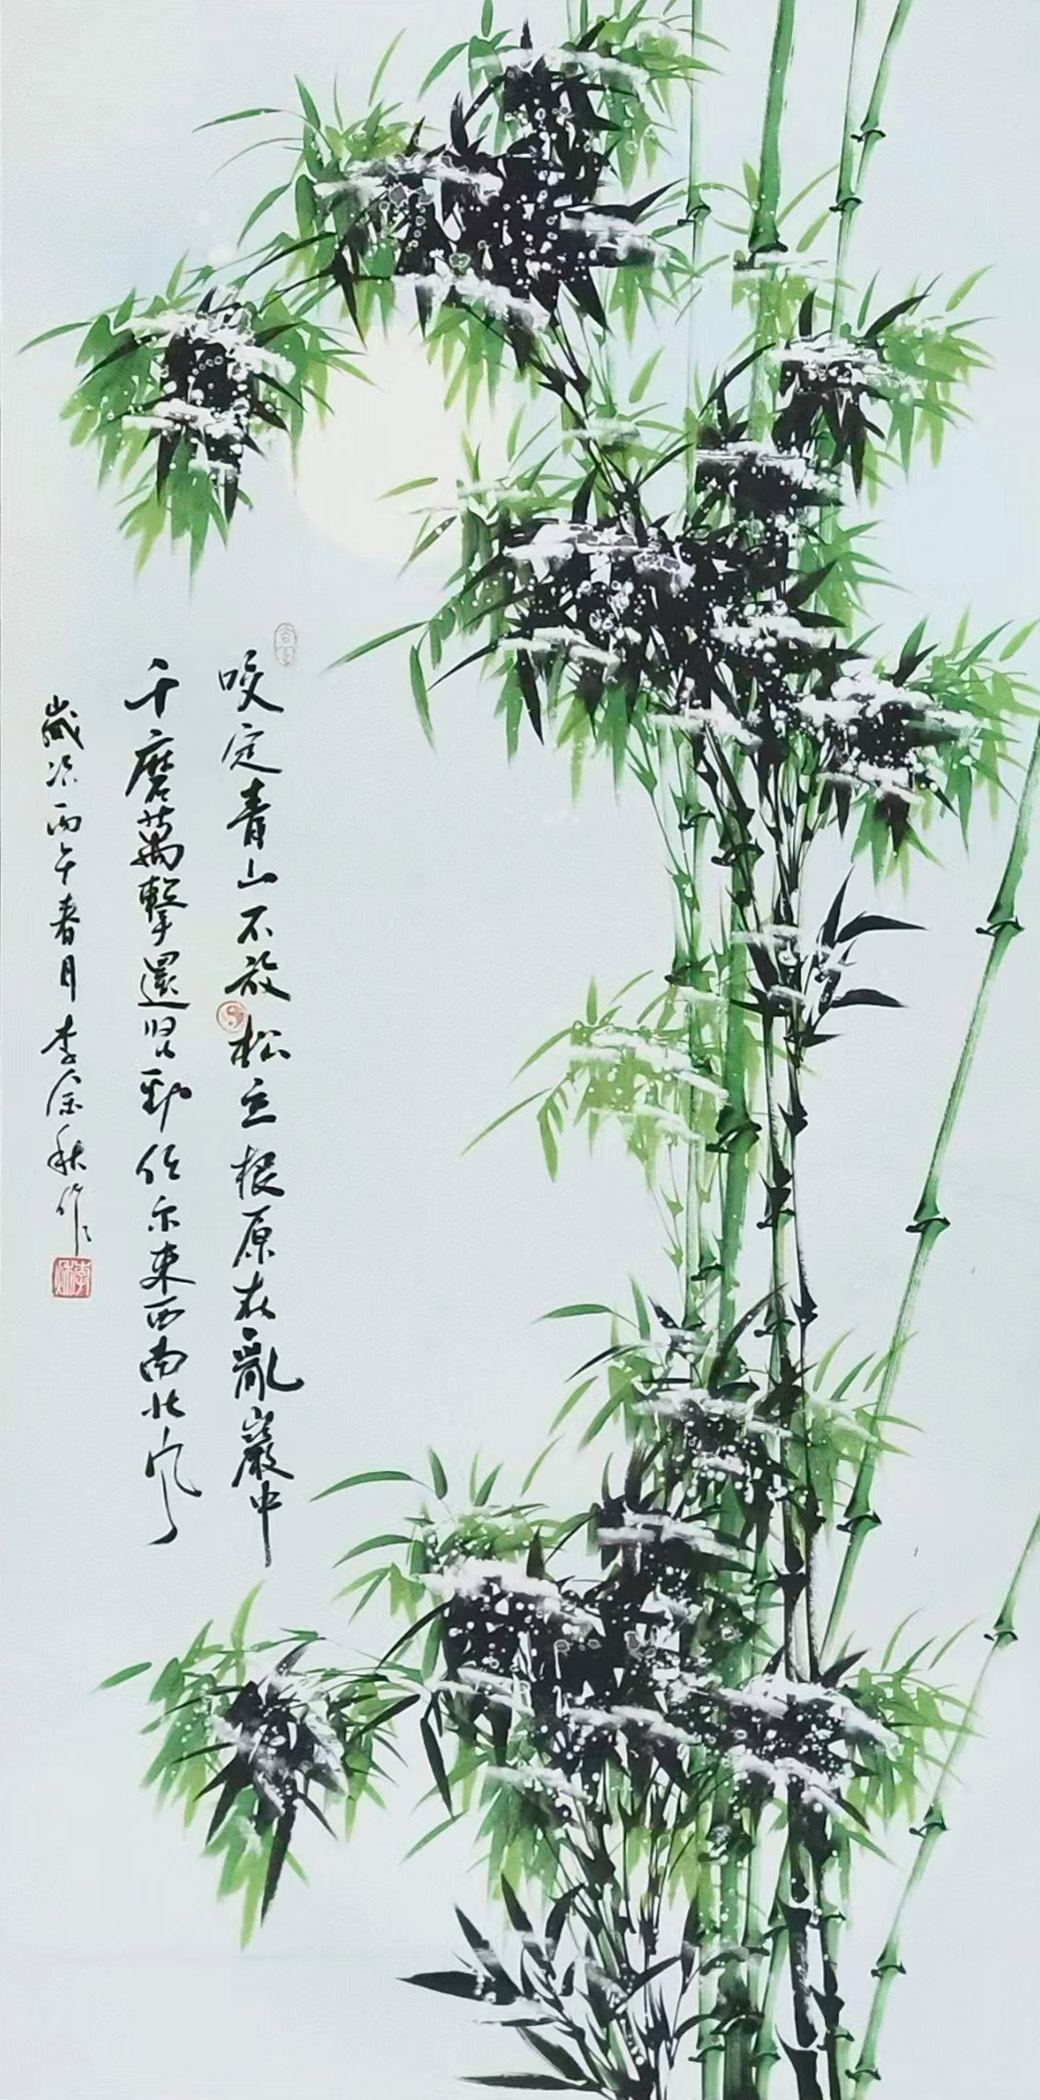 咬定青山不放松立根原在亂巖中
千磨萬擊還坚勁任尔東西南北风
歲次丙午春月李余秋作